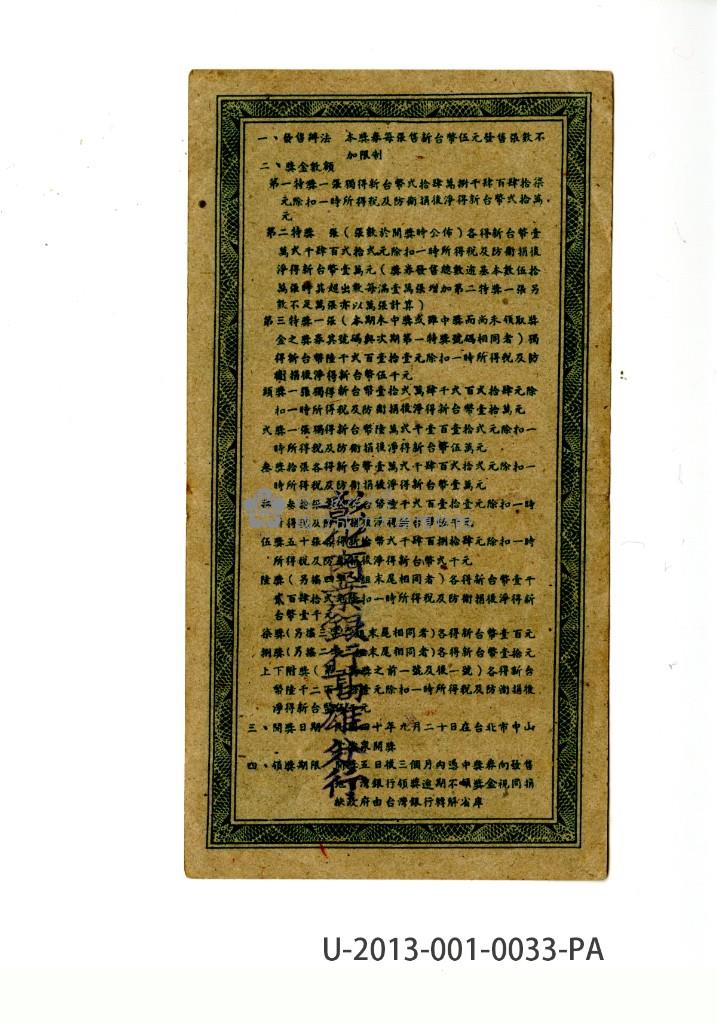 一、發售辦法　本獎券每張售新台幣伍元發售張數不
加限制
二、獎金數額
第一特獎一張獨得新台幣弍拾肆萬捌千肆百肆拾柒
元除扣一時所得稅及防衛捐後淨得新台幣弍拾萬
元
第二特獎　張（張數於開獎時公佈）各得新台幣壹
萬弍千肆百弍拾弍元除扣一時所得稅及防衛捐後
淨得新台幣壹萬元（獎券發售總數逾基本數伍拾
萬張時其超出數每滿壹萬張增加第二特獎一張另
數不足萬張亦以萬張計算）
第三特獎一張（本期未中獎或雖中獎而尚未領取獎
金之獎券其號碼與次期第一特獎號碼相同者）獨
得新台幣陸千弍百壹拾壹元除扣一時所得稅及防
衛捐後淨得新台幣伍千元
頭獎一張獨得新台幣壹拾弍萬肆千弍百弍拾肆元除
扣一時所得稅及防衛捐後淨得新台幣壹拾萬元
弍獎一張獨得新台幣陸萬弍千壹百壹拾弍元除扣一
時所得稅及防衛捐後淨得新台幣伍萬元
叁獎拾張各得新台幣壹萬弍千肆百弍拾弍元除扣一
時所得稅及防衛捐後淨得新台幣壹萬元
叁拾張　新台幣陸千弍百壹拾壹元除扣一時
得稅及防　捐後淨得　千元
伍獎五十張各得新台幣弍千肆百捌拾肆元除扣一時
所得稅及防　後淨得新台幣弍千元
陸獎（另搖四　組末尾相同者）各得新台幣壹千
貳百肆拾弍元除扣一時所得稅及防衛捐後淨得新
台幣壹千元
柒獎（另搖三　末尾相同者）各得新台幣壹百元
捌獎（另搖二　末尾相同者）各得新台幣壹拾元
上下附獎（　獎之前一號及後一號）各得新台
幣陸千二百　元除扣一時所得稅及防衛捐後
淨得新台幣　元
三、開獎日期　四十年九月二十日在台北市中山
堂開獎
四、領獎期限　開獎五日後三個月內憑中獎券向發售
台灣銀行領獎逾期不領獎金視同捐
獻政府由台灣銀行轉解省庫
彰化商業銀行高雄分行
U-2013-001-0033-PA